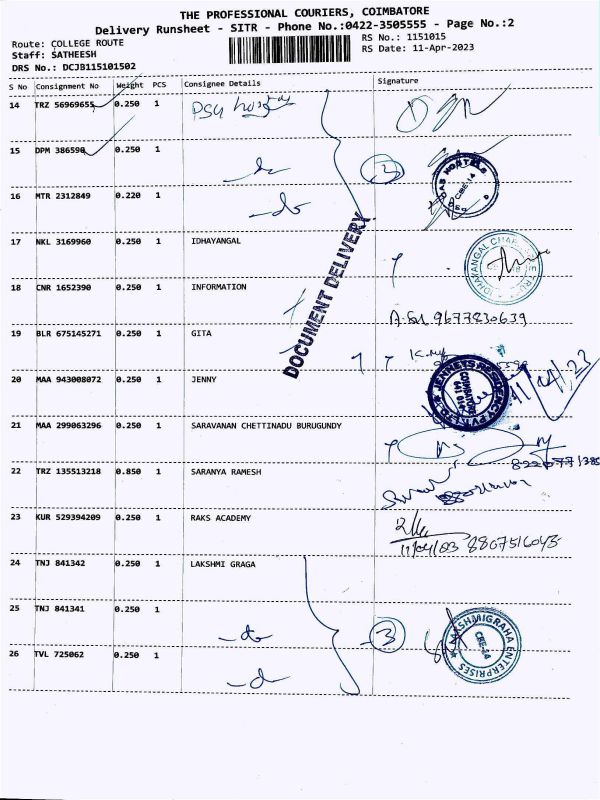 THE PROFESSIONAL COURIERS, COIMBATORE
Delivery Runsheet - SITR - Phone No.:0422-3505555 - Page No.:2
Route: COLLEGE ROUTE
RS No.: 1151015
Staff: SATHEESH
RS Date: 11-Apr-2023
DRS No.: DCJB115101502
S No Consignment No Weight PCS Consignee Details Signature
14 TRZ 56969655 0.250 1
15 DPM 386590 0.250 1
16 MTR 2312849 0.220 1
17 NKL 3169960 0.250 1 IDHAYANGAL
18 CNR 1652390 0.250 1 INFORMATION
9677830639
DOCUMENT DELIVERY
19 BLR 675145271 0.250 1 GITA
20 MAA 943008072 0.250 1 JENNY
JENNEYS RESIDENCY PVT LTD
COIMBATORE
21 MAA 299063296 0.250 1 SARAVANAN CHETTINADU BURUGUNDY
22 TRZ 135513218 0.850 1 SARANYA RAMESH
23 KUR 529394209 0.250 1 RAKS ACADEMY
8807516043
24 TNJ 841342 0.250 1 LAKSHMI GRAGA
25 TNJ 841341 0.250 1
3
LAKSHMIGRAHA ENTERPRISES
26 TVL 725062 0.250 1